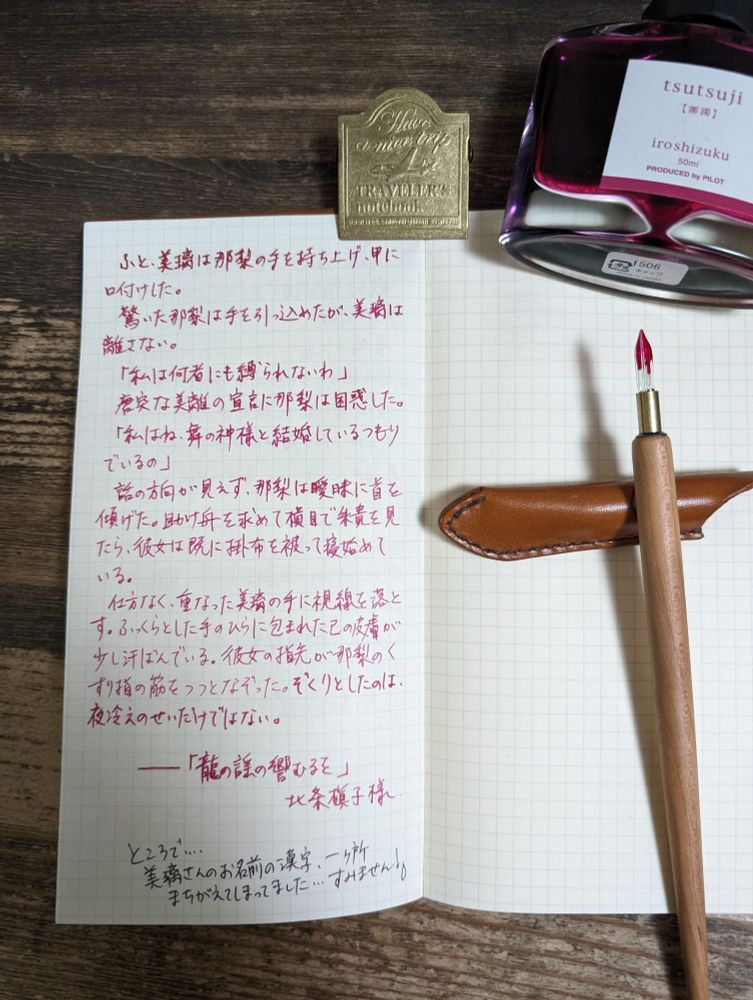 Have
a nice trip
TRAVELER'S
notebook
tsutsuji
【躑躅】
iroshizuku
50ml
PRODUCED by PILOT
1506
キャップ
ふと、美璃は那梨の手を持ち上げ、甲に
口付けした。
驚いた那梨は手を引っ込めたが、美璃は
離さない。
「私は何者にも縛られないわ」
唐突な美離の宣言に那梨は困惑した。
「私はね、舞の神様と結婚しているつもり
でいるの」
話の方向が見えず、那梨は曖昧に首を
傾げた。助け舟を求めて横目で朱貴を見
たら、彼女は既に掛布を被って寝始めて
いる。
仕方なく、重なった美璃の手に視線を落と
す。ふっくらとした手のひらに包まれた己の皮膚が
少し汗ばんでいる。彼女の指先が那梨のく
すり指の筋をつつとなぞった。ぞくりとしたのは、
夜冷えのせいだけではない。
――「龍の謡の響むるを」
北条槇子様
ところで‥‥
美璃さんのお名前の漢字、一ヶ所
まちがえてしまってました…すみません！